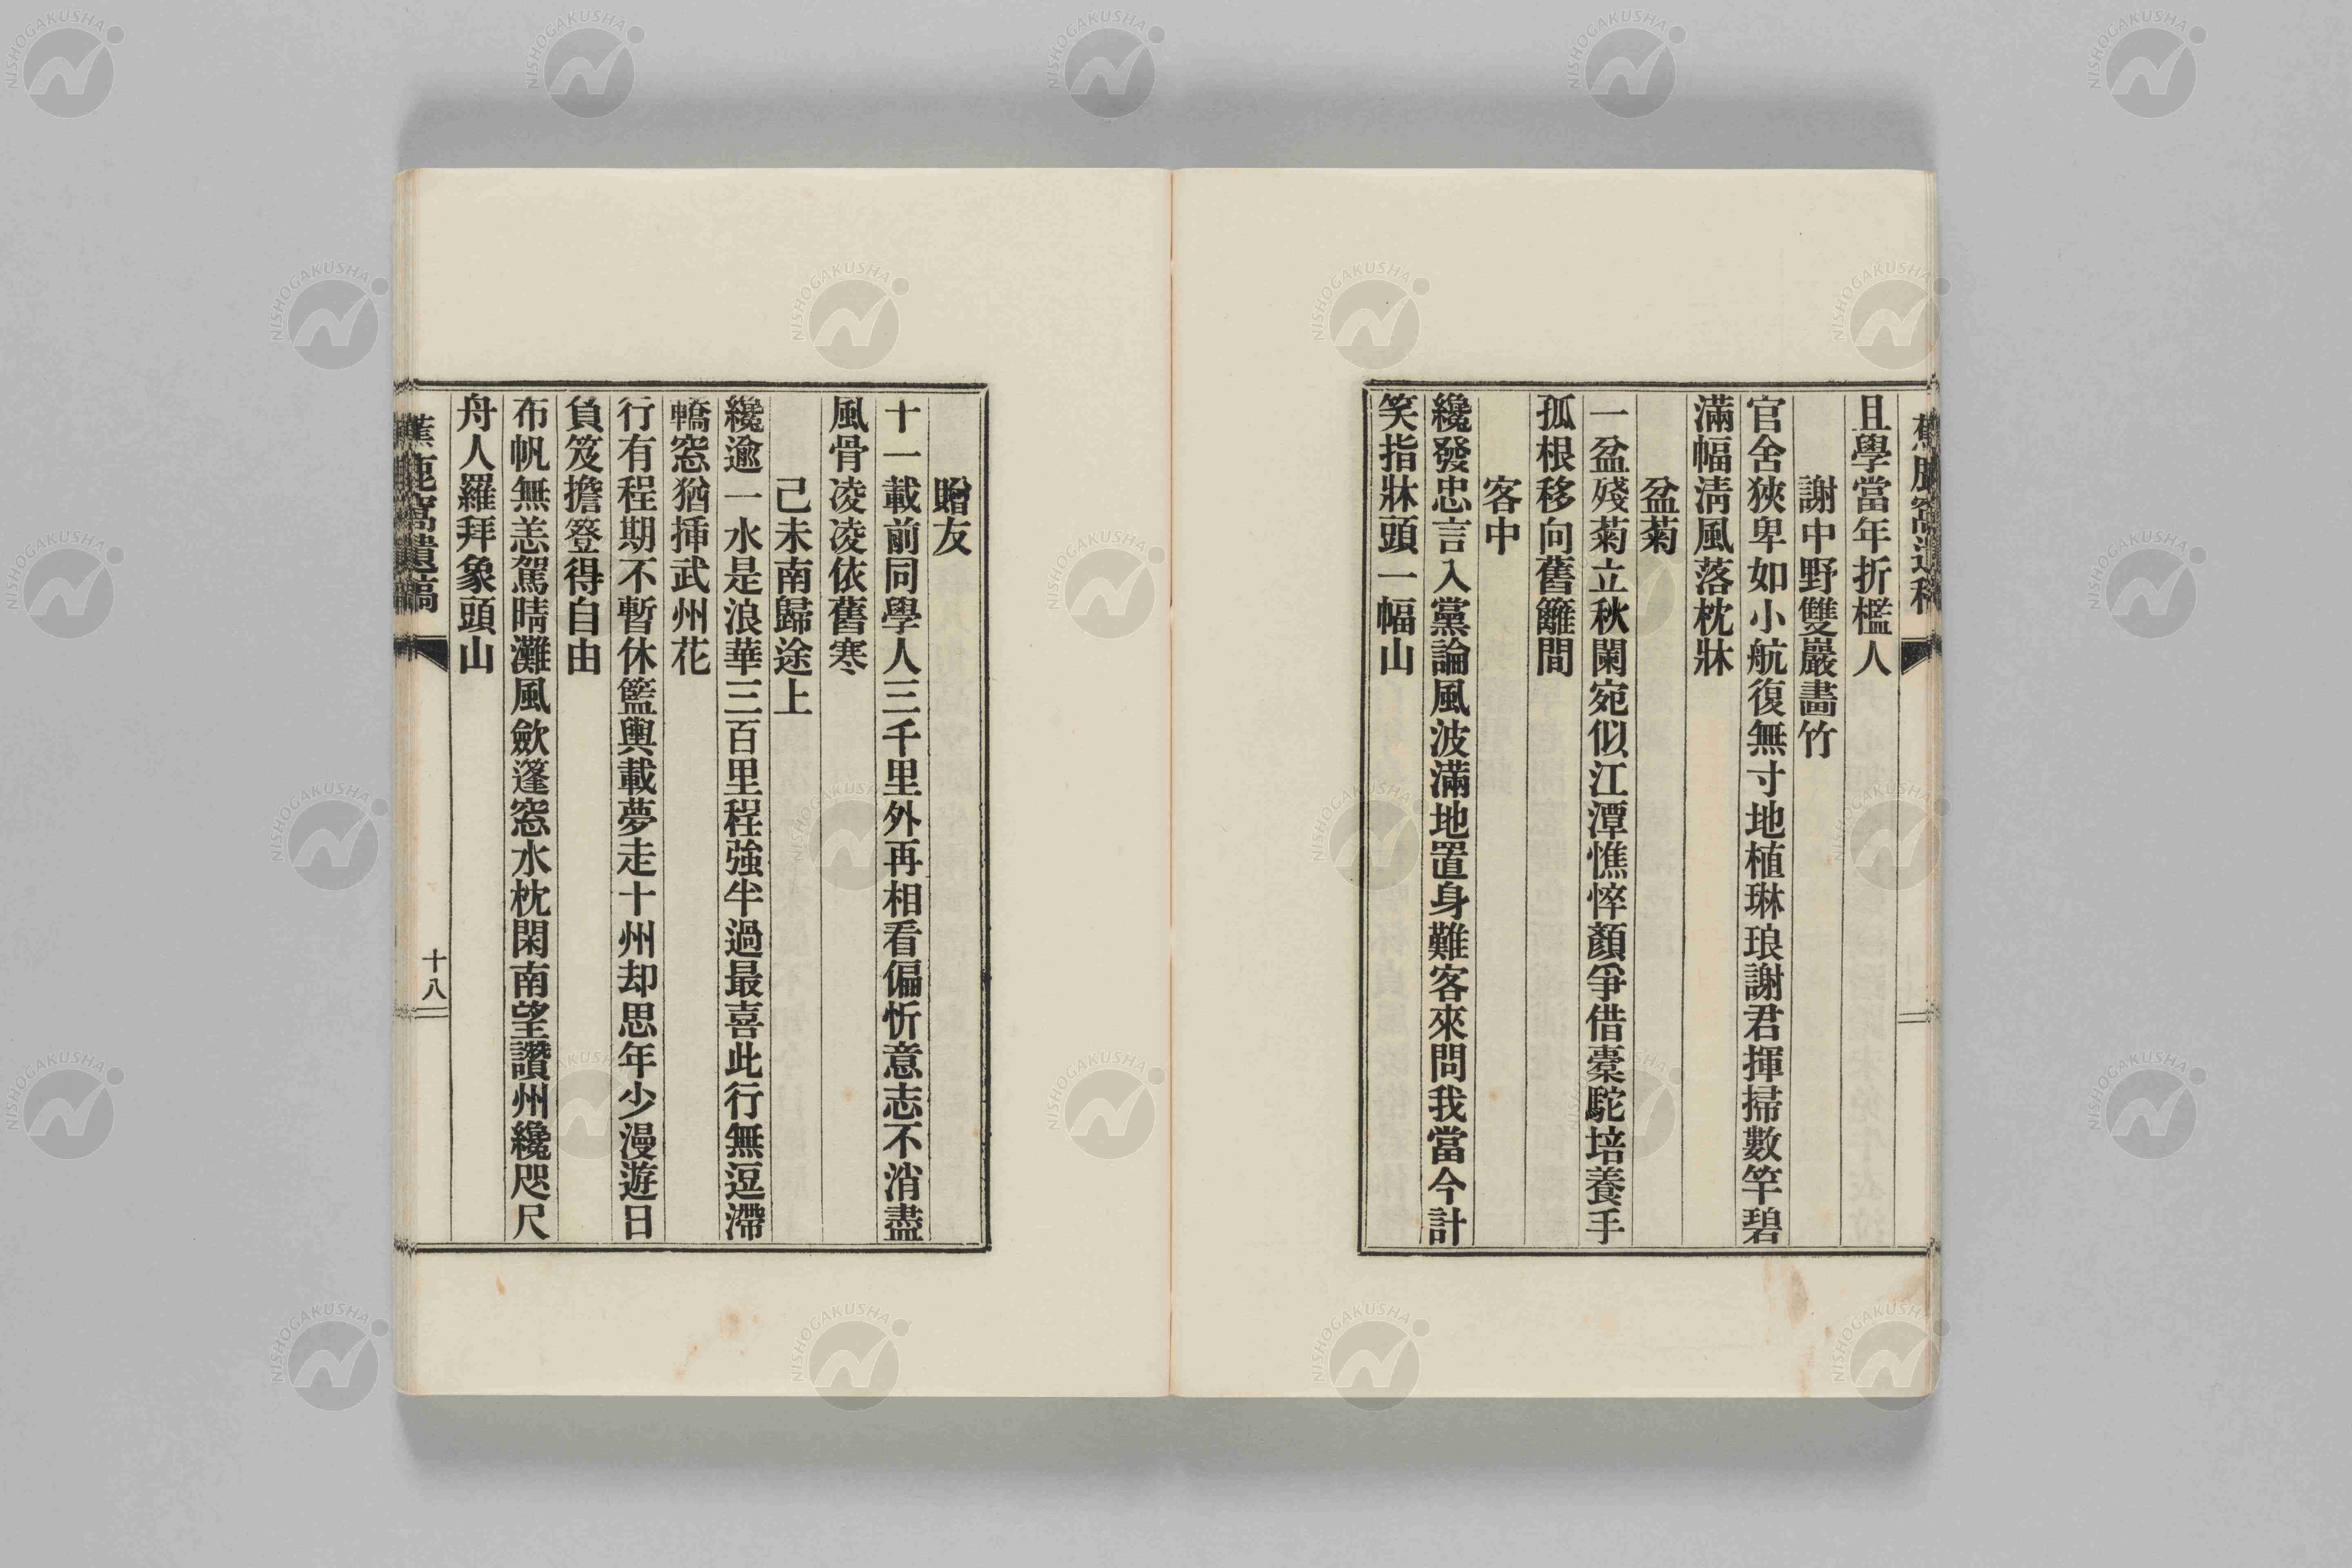 且學當年折檻人
謝中野雙巖畵竹
官舍狹卑如小航復無寸地植琳琅謝君揮掃數竿碧
滿幅淸風落枕牀
盆菊
一盆殘菊立秋闌宛似江潭憔悴顏爭借槖駝培養手
孤根移向舊籬間
客中
纔發忠言入黨論風波滿地置身難客來問我當今計
笑指牀頭一幅山
贈友
十一載前同學人三千里外再相看偏忻意志不消盡
風骨凌凌依舊寒
己未南歸途上
纔逾一水是浪華三百里程強半過最喜此行無逗滯
轎窓猶挿武州花
行有程期不暫休籃輿載夢走十州却思年少漫遊日
負笈擔簦得自由
布帆無恙駕晴灘風歛篷窓水枕閑南望讚州纔咫尺
舟人羅拜象頭山
蕉鹿窩遺稿
十八
NISHOGAKUSHA